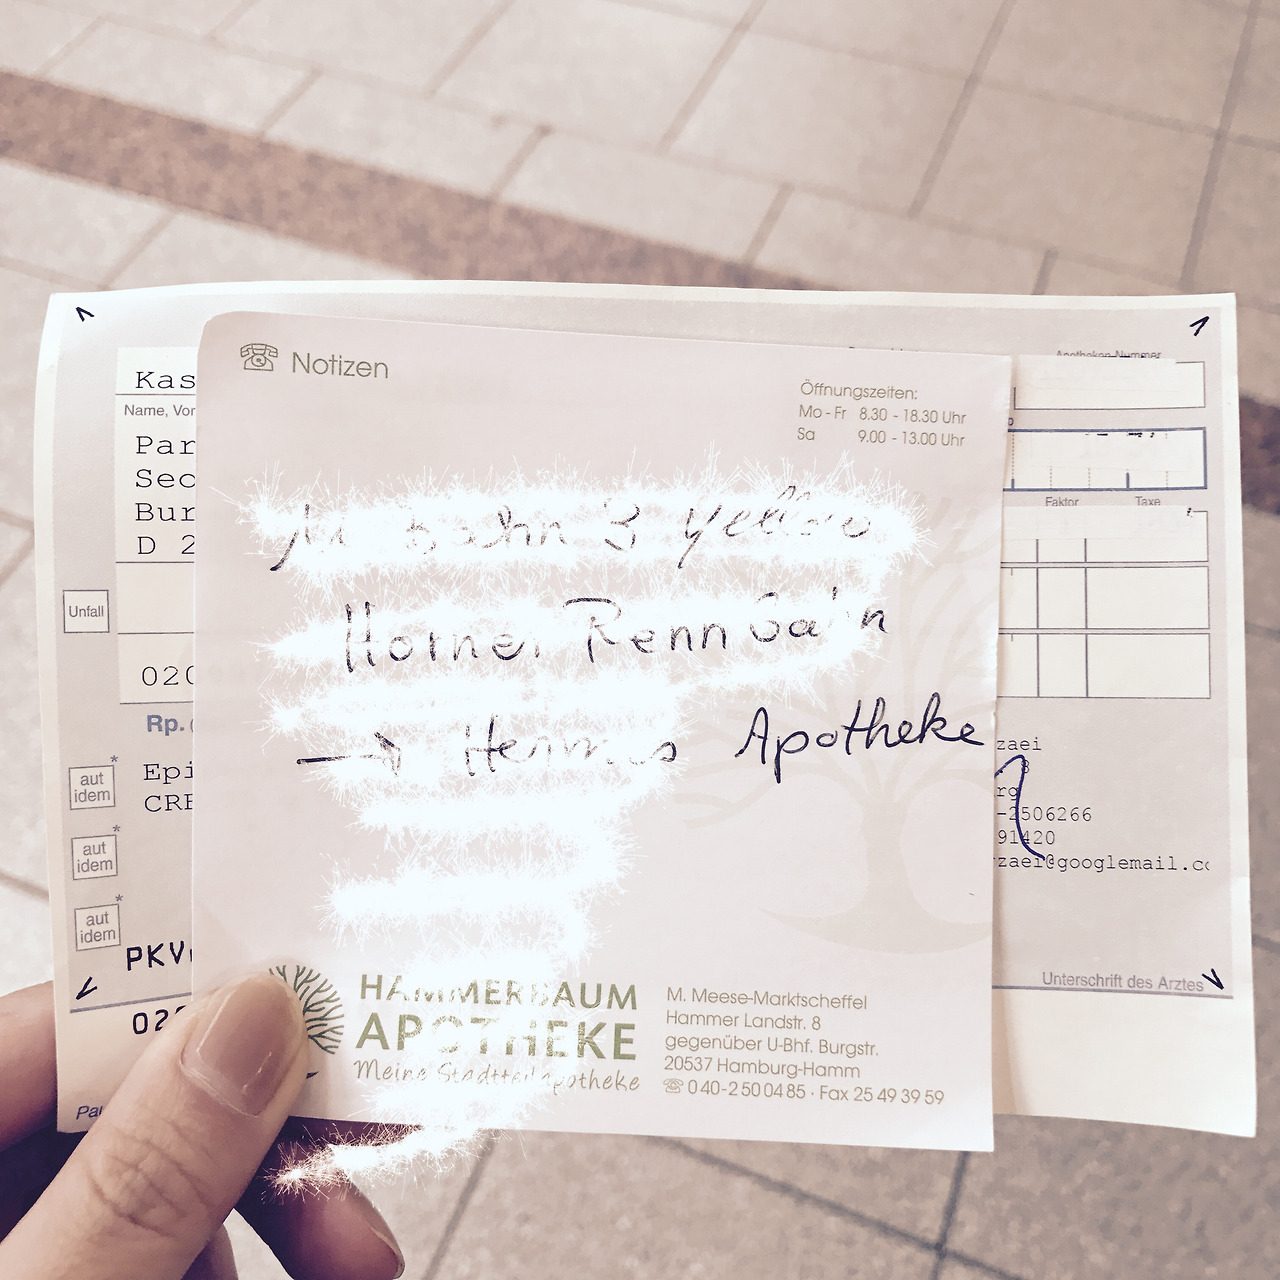 Notizen
Öffnungszeiten:
Mo - Fr 8.30 - 18.30 Uhr
Sa 9.00 - 13.00 Uhr
Bahn 3 Yellow
Horner Rennbahn
→ Hermes Apotheke
HAMMERBAUM
APOTHEKE
Meine Stadtteilapotheke
M. Meese-Marktscheffel
Hammer Landstr. 8
gegenüber U-Bhf. Burgstr.
20537 Hamburg-Hamm
☏ 040-2 50 04 85 · Fax 25 49 39 59
Kas
Name, Vor
Par
Sec
Bur
D 2
Unfall
020
Rp. (
aut idem *
Epi
CRE
aut idem *
aut idem *
PKV
02
Apotheken-Nummer
Faktor Taxe
zaei
rg
-2506266
91420
rzaei@googlemail.co
Unterschrift des Arztes